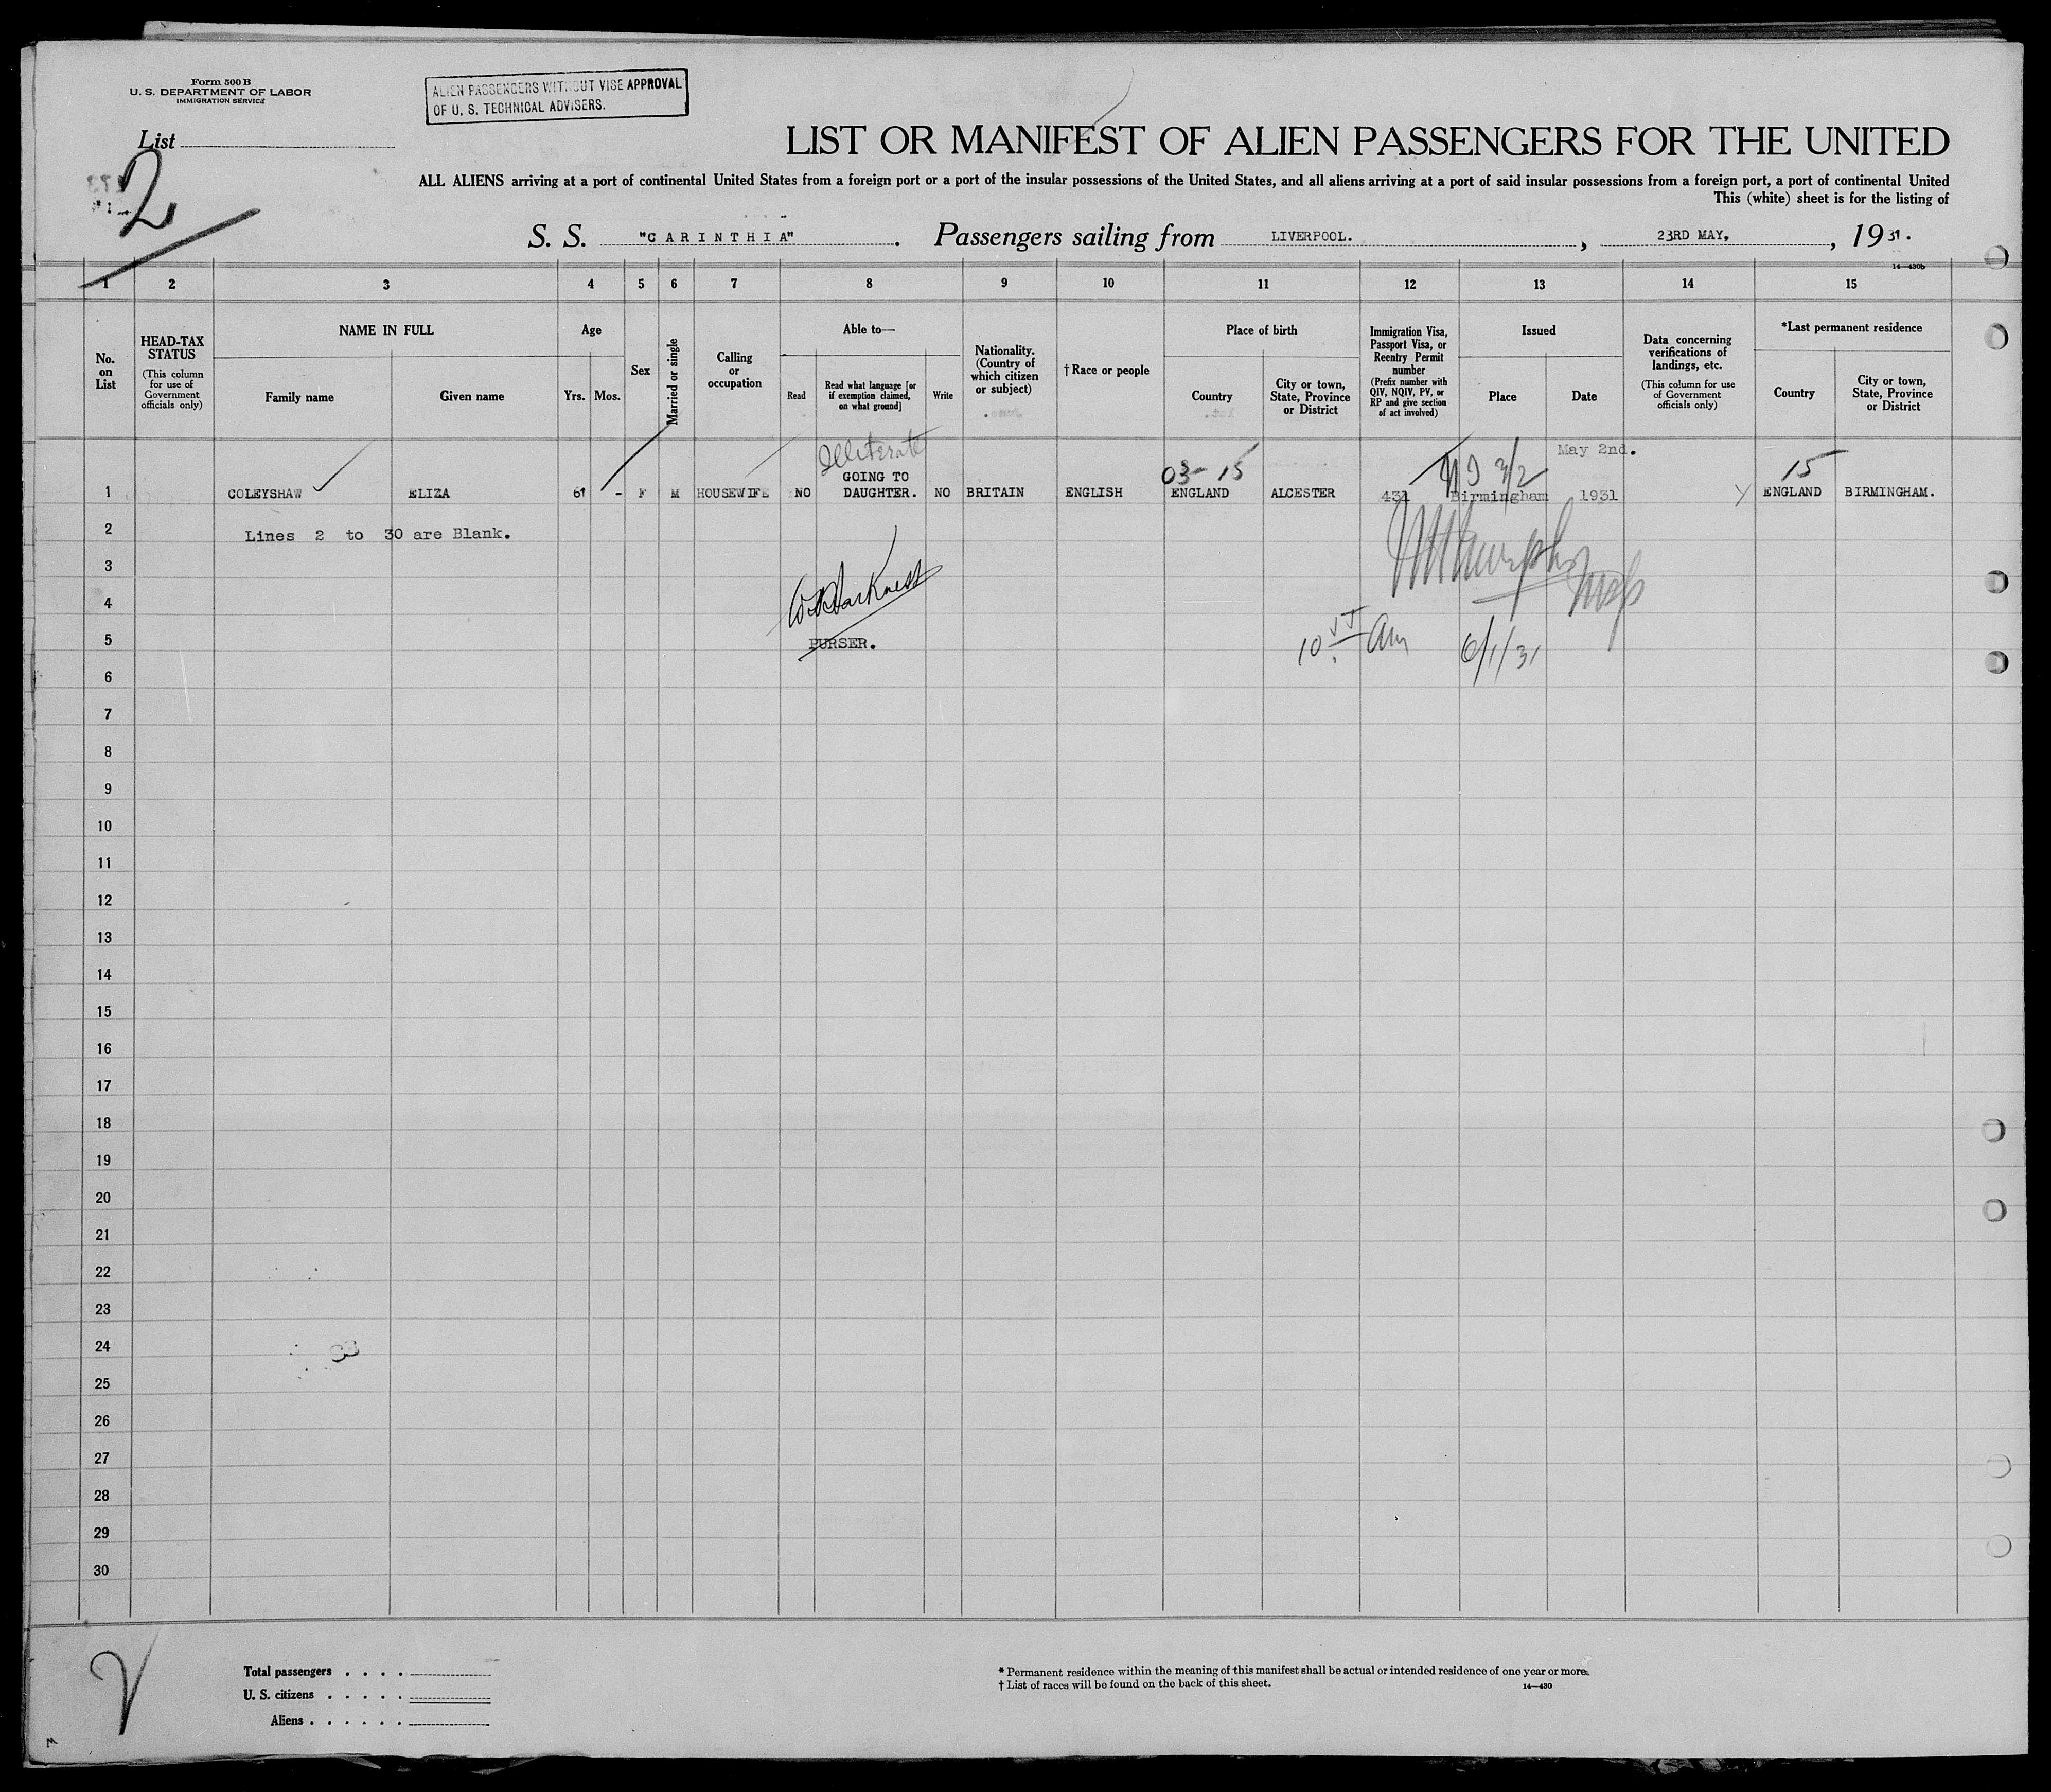 Form 500 B
U. S. DEPARTMENT OF LABOR
IMMIGRATION SERVICE
ALIEN PASSENGERS WITHOUT VISE APPROVAL
OF U. S. TECHNICAL ADVISERS.
List
2
LIST OR MANIFEST OF ALIEN PASSENGERS FOR THE UNITED
ALL ALIENS arriving at a port of continental United States from a foreign port or a port of the insular possessions of the United States, and all aliens arriving at a port of said insular possessions from a foreign port, a port of continental United
This (white) sheet is for the listing of
S. S. "CARINTHIA". Passengers sailing from LIVERPOOL., 23RD MAY, , 19 31.
14—430b
1 2 3 4 5 6 7 8 9 10 11 12 13 14 15
No. on List
HEAD-TAX STATUS
(This column for use of Government officials only)
NAME IN FULL
Family name
Given name
Age
Yrs. Mos.
Sex
Married or single
Calling or occupation
Able to—
Read
Read what language [or if exemption claimed, on what ground]
Write
Nationality. (Country of which citizen or subject)
†Race or people
Place of birth
Country
City or town, State, Province or District
Immigration Visa, Passport Visa, or Reentry Permit number
(Prefix number with QIV, NQIV, PV, or RP and give section of act involved)
Issued
Place
Date
Data concerning verifications of landings, etc.
(This column for use of Government officials only)
*Last permanent residence
Country
City or town, State, Province or District
Illiterate
03-15
3/2
May 2nd.
15
GOING TO
1 COLEYSHAW ELIZA 61 - F M HOUSEWIFE NO DAUGHTER. NO BRITAIN ENGLISH ENGLAND ALCESTER 431 Birmingham 1931 ENGLAND BIRMINGHAM.
2 Lines 2 to 30 are Blank.
3
4
5 PURSER. 10 Am 6/1/31
6
7
8
9
10
11
12
13
14
15
16
17
18
19
20
21
22
23
24
25
26
27
28
29
30
Total passengers . . . .
U. S. citizens . . . . .
Aliens . . . . . .
* Permanent residence within the meaning of this manifest shall be actual or intended residence of one year or more.
† List of races will be found on the back of this sheet.
14—430